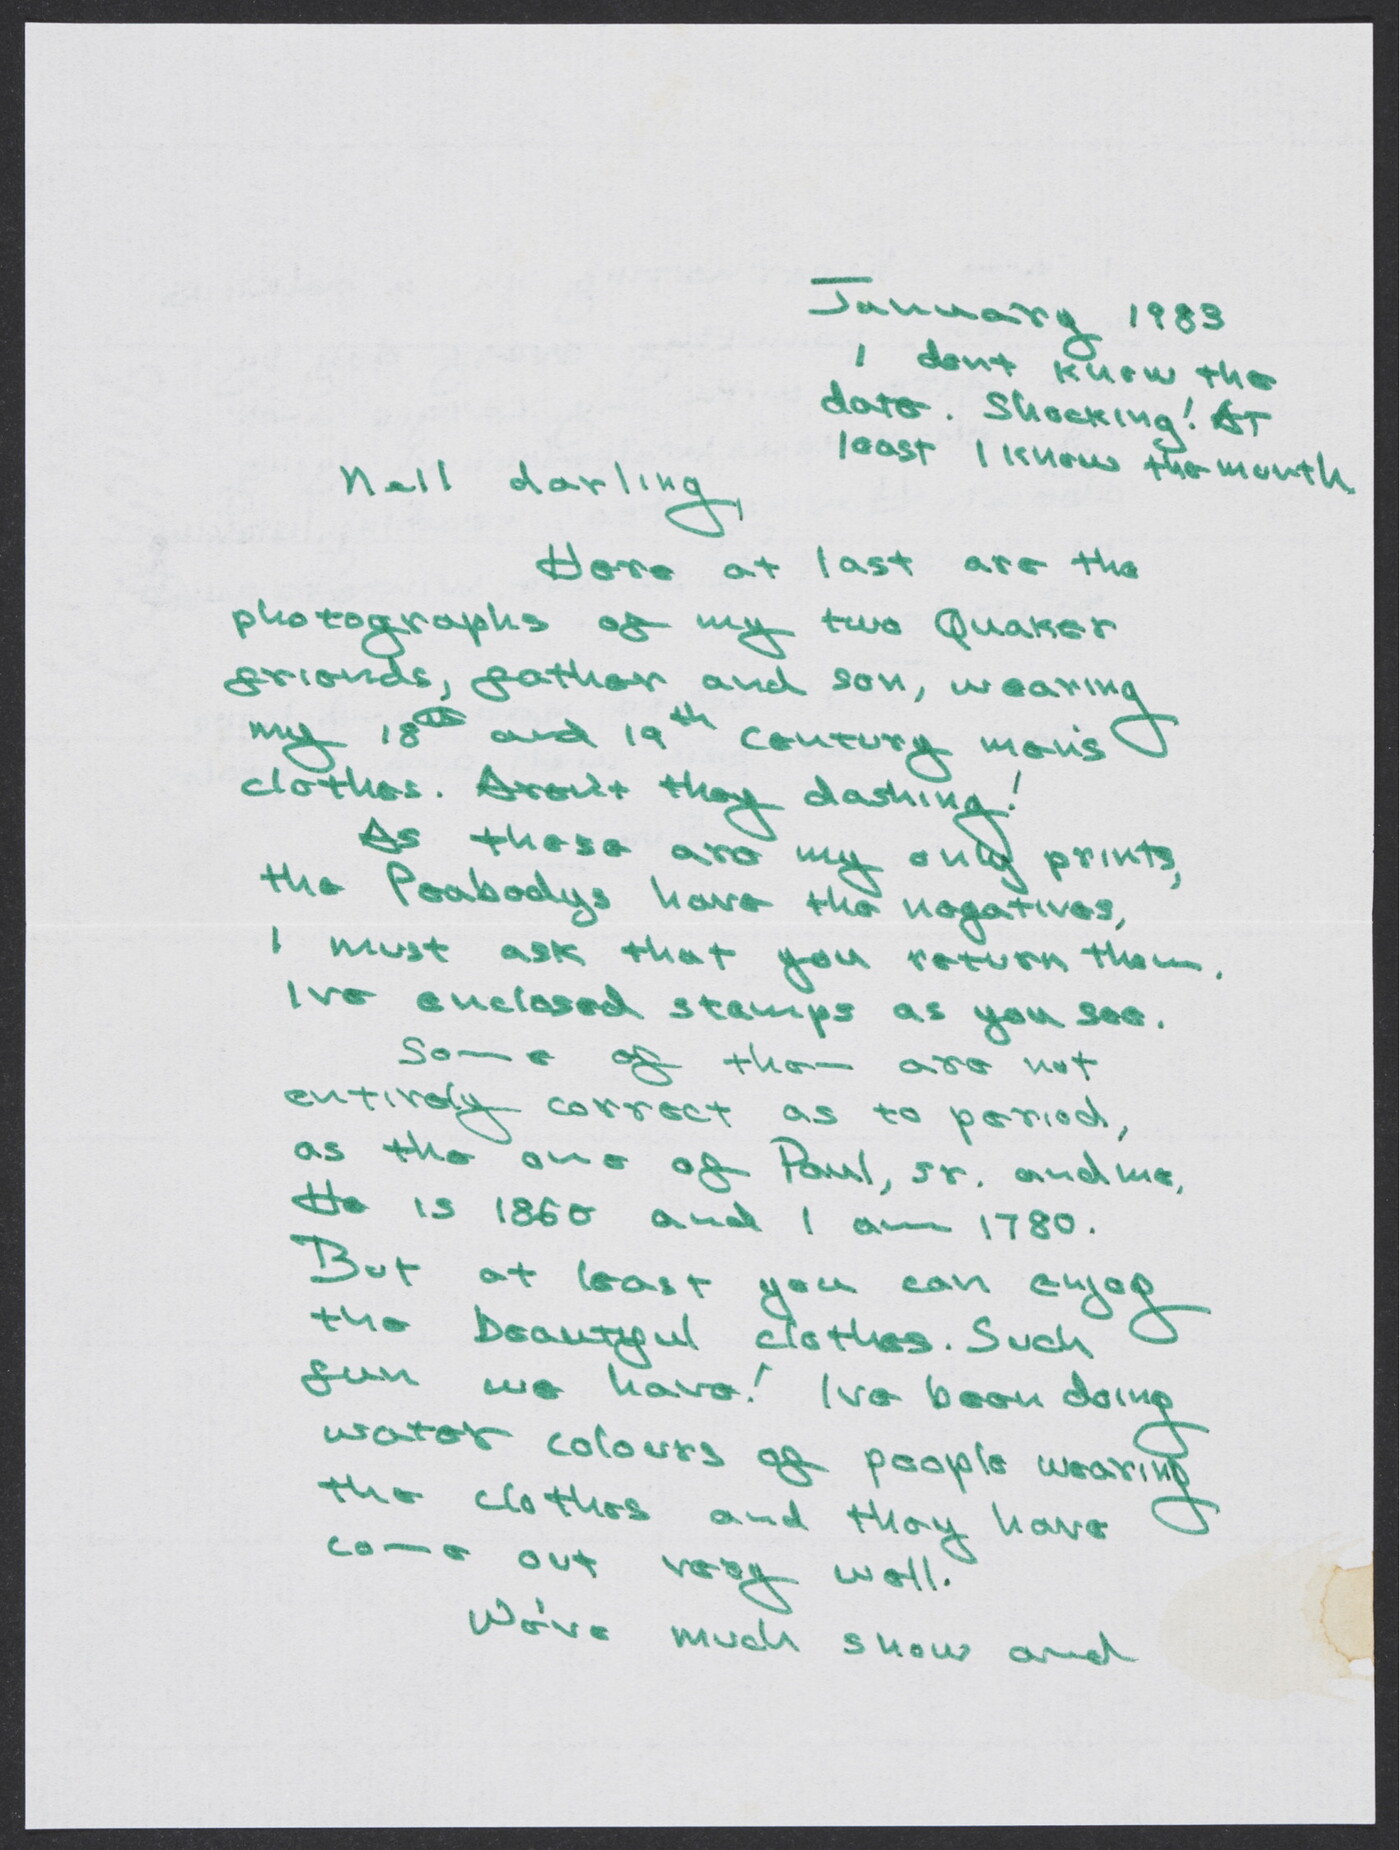 January 1983
I dont know the
date. Shocking! At
least I know the month.
Nell darling,
Here at last are the
photographs of my two Quaker
friends, father and son, wearing
my 18th and 19th century men's
clothes. Aren't they dashing!
As these are my only prints,
the Peabodys have the negatives,
I must ask that you return them.
Ive enclosed stamps as you see.
Some of them are not
entirely correct as to period,
as the one of Paul, sr. and me.
He is 1860 and I am 1780.
But at least you can enjoy
the beautiful clothes. Such
fun we have! Ive been doing
water colours of people wearing
the clothes and they have
come out very well.
We've much snow and